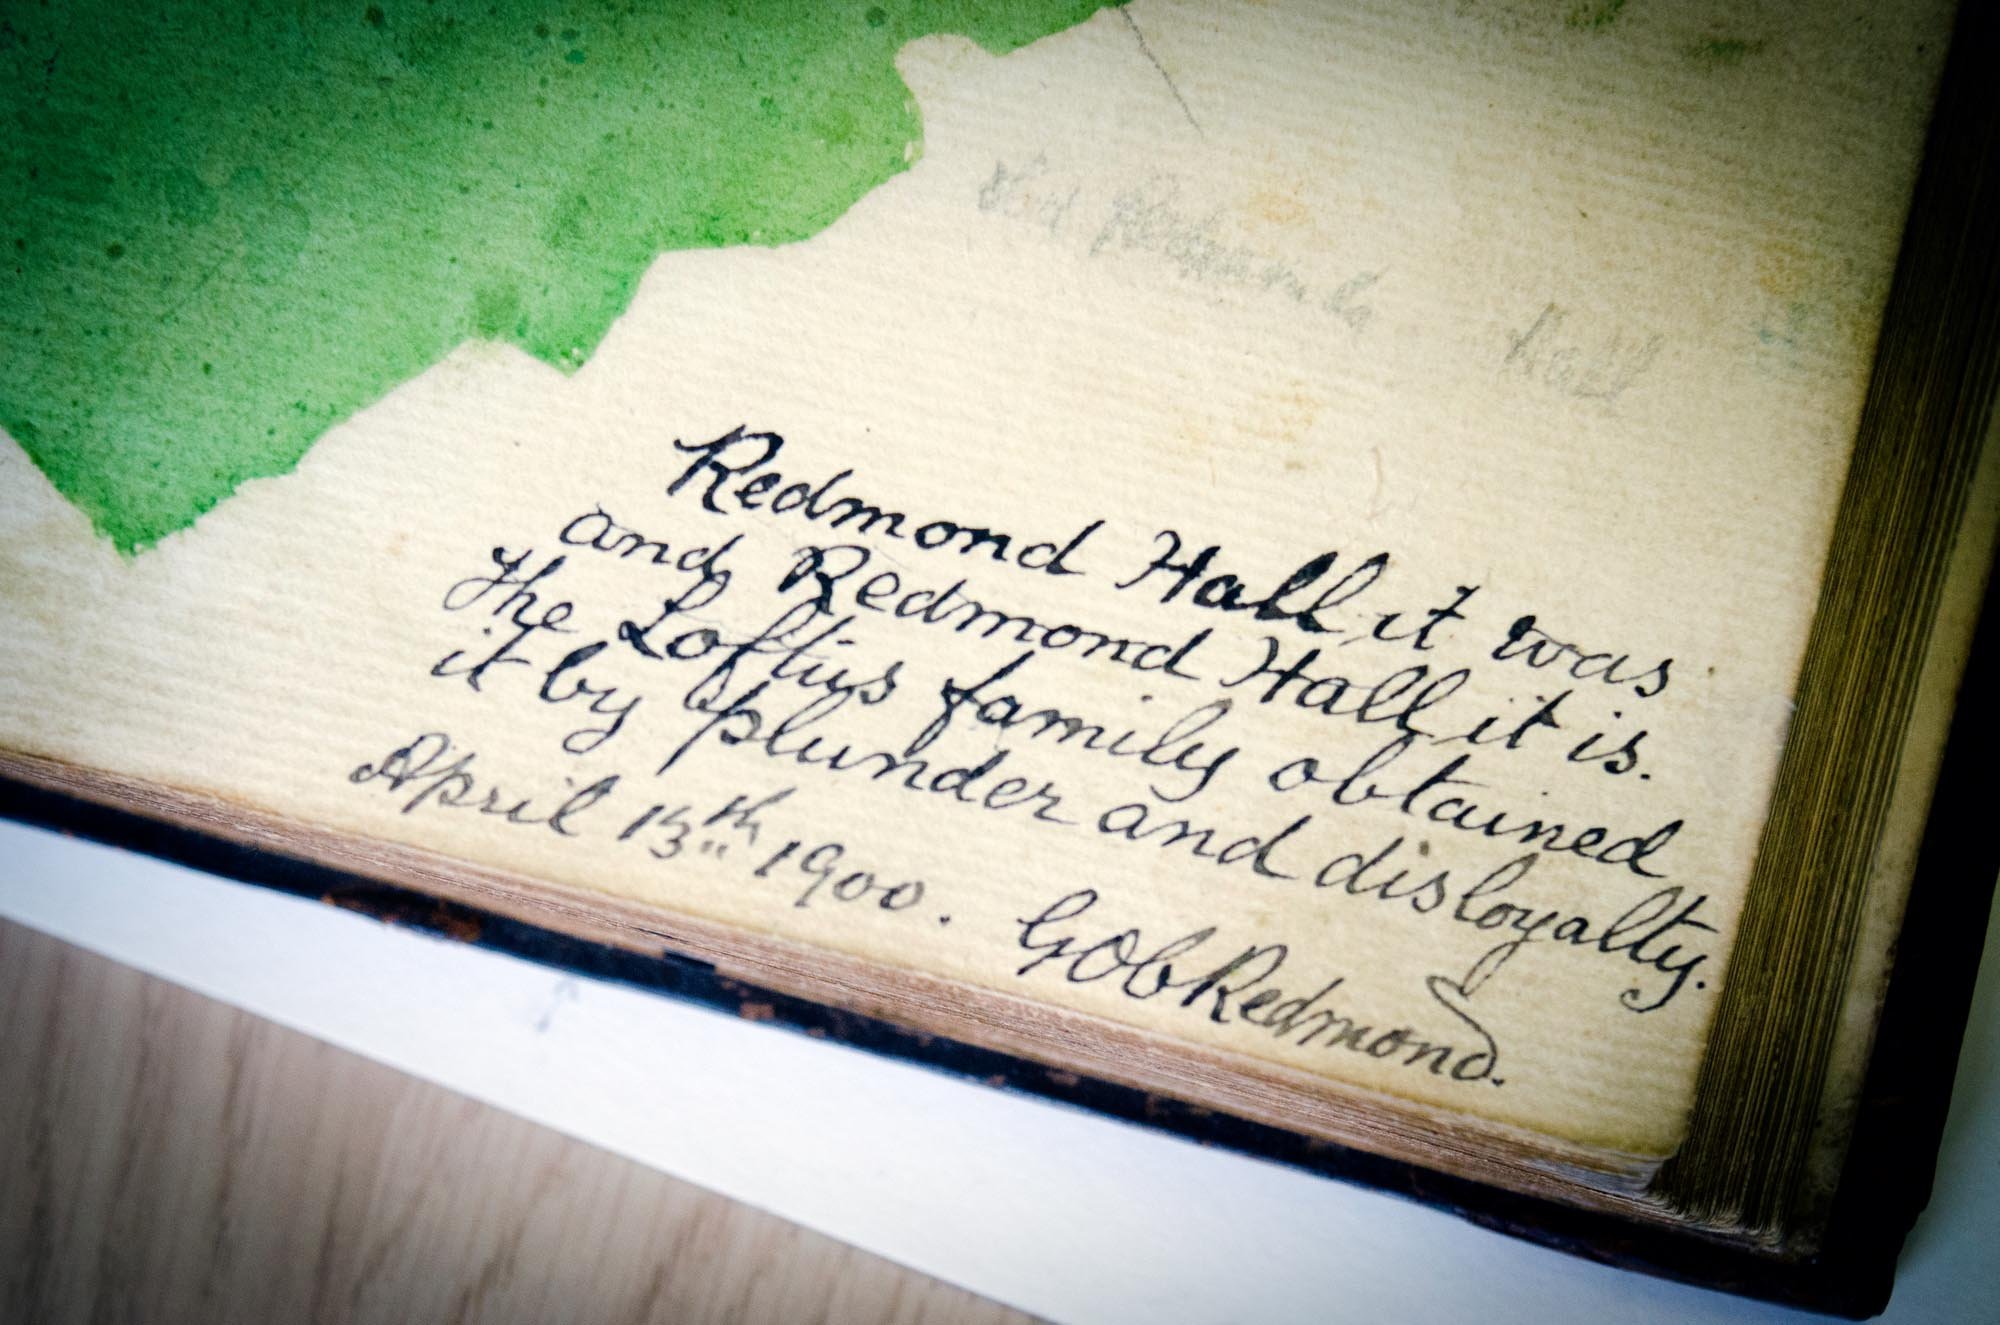 Redmond Hall it was
and Redmond Hall it is.
The Loftus family obtained
it by plunder and disloyalty.
April 13th 1900. GObRedmond.